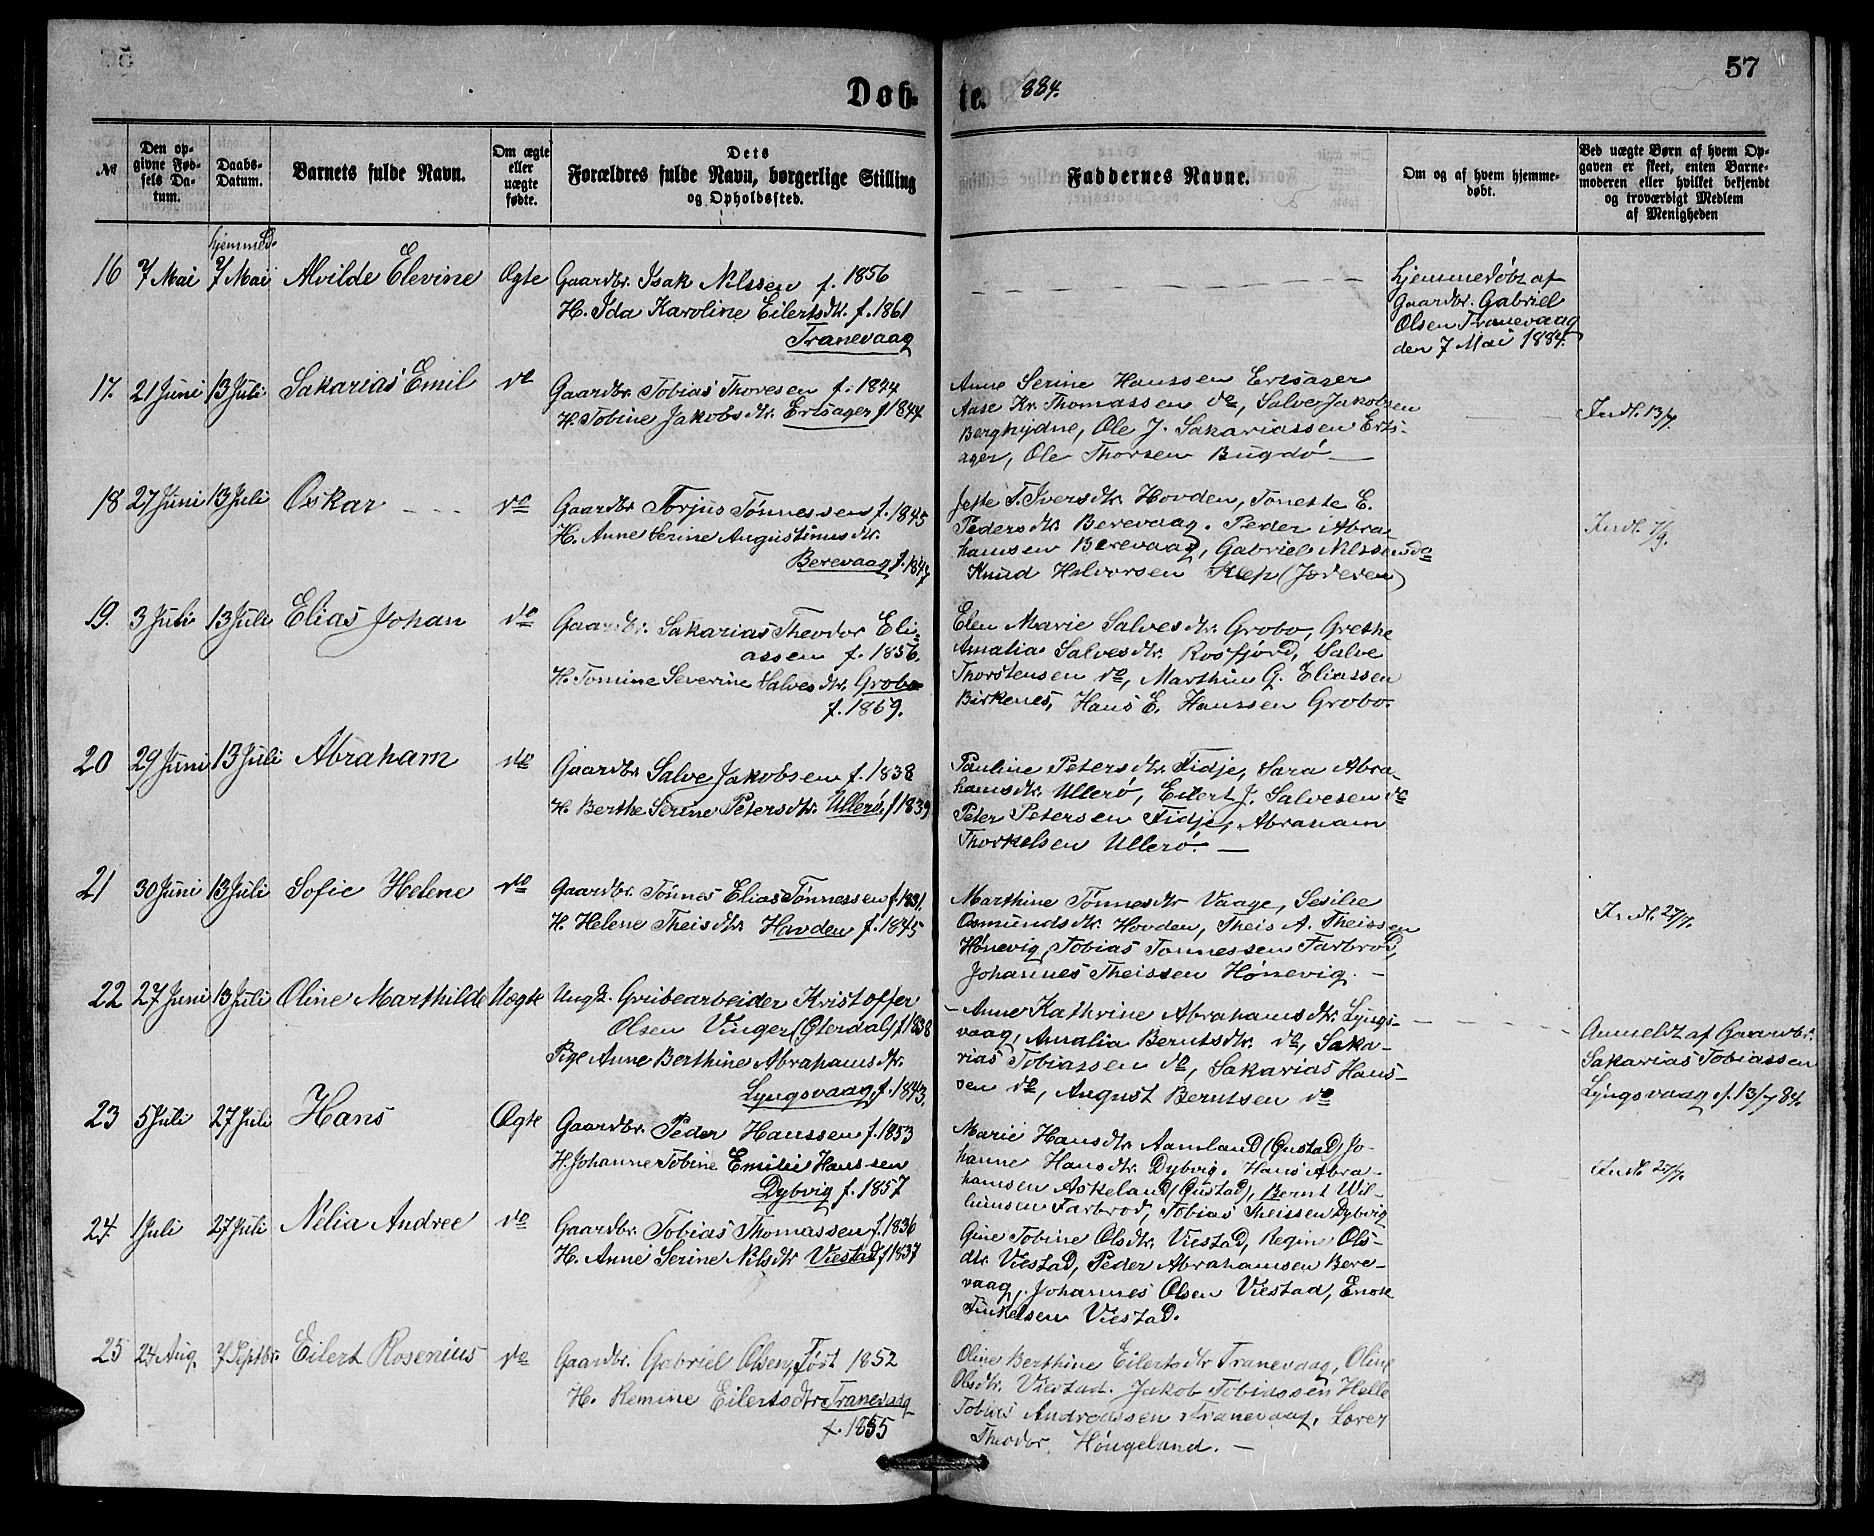 57
Døbte. 1884.
№
Den opgivne Fødsels Datum.
Daabs-Datum.
Barnets fulde Navn.
Om ægte eller uægte fødte.
Dets Forældres fulde Navn, borgerlige Stilling og Opholdssted.
Faddernes Navne.
Om og af hvem hjemmedøbt.
Ved uægte Børn af hvem Opgaven er skeet, enten Barnemoderen eller hvilket bekjendt og troværdigt Medlem af Menigheden
hjemmed.
16 7 Mai 7 Mai Alvilde Elevine Ægte
Gaardbr. Isak Nilssen f. 1856
H. Ida Karoline Eilertsdtr. f. 1861
Tranevaag
hjemmedøbt af
Gaardbr. Gabriel
Olsen Tranevaag
den 7 Mai 1884.
17. 21 Juni 13 Juli Sakarias Emil do
Gaardbr. Tobias Thoresen f. 1844
H. Tobine Jakobsdtr. Ertsager f 1844
Anne Serine Hanssen Ertsager
Aase Kr. Thomassen do, Salve Jakobsen
Berghydne, Ole J. Sakariassen Erts-
ager, Ole Thorsen Bugdø
Indl. 13/7
18 27 Juni 13 Juli Oskar do
Gaardbr Torjus Tønnessen f. 1845
H. Anne Serine Augustinusdtr.
Berevaag f. 1847
Jette T. Iversdtr. Hovden, Tonette E.
Pedersdtr. Berevaag. Peder Abra-
hamsen Berevaag, Gabriel Nilssen do
Knud Halvorsen
Indl. 7/9.
19. 3 Juli 13 Juli Elias Johan do
Gaardbr. Sakarias Theodor Eli-
assen f. 1856.
H. Tomine Severine Salvesdtr. Grobo
f. 1859.
Elen Marie Salvesdtr. Grobo, Grethe
Amalia Salvesdtr. Rosfjord, Salve
Thorstensen do, Marthin G. Eliassen
Birkenes, Hans E. Hanssen Grobo.
20 29 Juni 13 Juli Abraham do
Gaardbr Salve Jakobsen f. 1838
H. Berthe Serine Petersdtr. Ullerø. f 1839
Pauline Petersdtr. Fidje, Sara Abra-
hamsdtr. Ullerø, Eilert J. Salvesen do
Peter Petersen Fidje, Abraham
Thorkelsen Ullerø.
21 30 Juni 13 Juli Sofie Helene do
Gaardbr. Tønnes Elias Tønnessen f. 1831
H. Helene Theisdtr. Hovden f. 1845
Marthine Tønnesdtr Vaage, Sesilie
Osmundsdtr. Hovden, Theis A. Theissen
Hønevig, Tobias Tønnessen Farbrod,
Johannes Theissen Hønevig.
Indl. 27/7.
22 27 Juni 13 Juli Oline Marthilde Uægte
Ungk. Grubearbeider Kristoffer
Olsen Vinger (Østerdal) f. 1838
Pige Anne Berthine Abrahamsdtr.
Lyngsvaag. f. 1843.
Anne Kathrine Abrahamsdtr. Lyngs-
vaag, Amalia Berntsdtr. do, Saka-
rias Tobiassen do, Sakarias Hans-
sen do, August Berntsen do
Anmeldt af Gaardbr.
Sakarias Tobiassen
Lyngsvaag d. 13/7 84.
23 5 Juli 27 Juli Hans Ægte
Gaardbr. Peder Hanssen f. 1853
H. Johanne Tobine Emilie Hanssen
Dybvig f. 1857
Marie Hansdtr. Aamland (Øustad) Jo-
hanne Hansdtr. Dybvig. Hans Abra-
hamsen Askeland (Øustad), Bernt Wil-
lumsen Farbrod, Tobias Theissen Dybvig
Indl. 27/7.
24. 1 Juli 27 Juli Nelia Andree do
Gaardbr. Tobias Thomassen f. 1836
H. Anne Serine Nilsdtr Viestad f 1837
Gine Tobine Olsdtr. Viestad, Regine Ols-
dtr. Viestad, Peder Abrahamsen Bere-
vaag, Johannes Olsen Viestad, Enok
Tinkelsen Viestad.
25 24 Aug. 7 Septbr. Eilert Rosenius do
Gaardbr. Gabriel Olsen, Født 1852
H. Remine Eilertsdtr Tranevaag
f. 1855
Oline Berthine Eilertsdtr Tranevaag, Oline
Olsdtr. Viestad. Jakob Tobiassen Helle
Tobias Andreassen Tranevaag. Lorez
Theodor Høugeland.